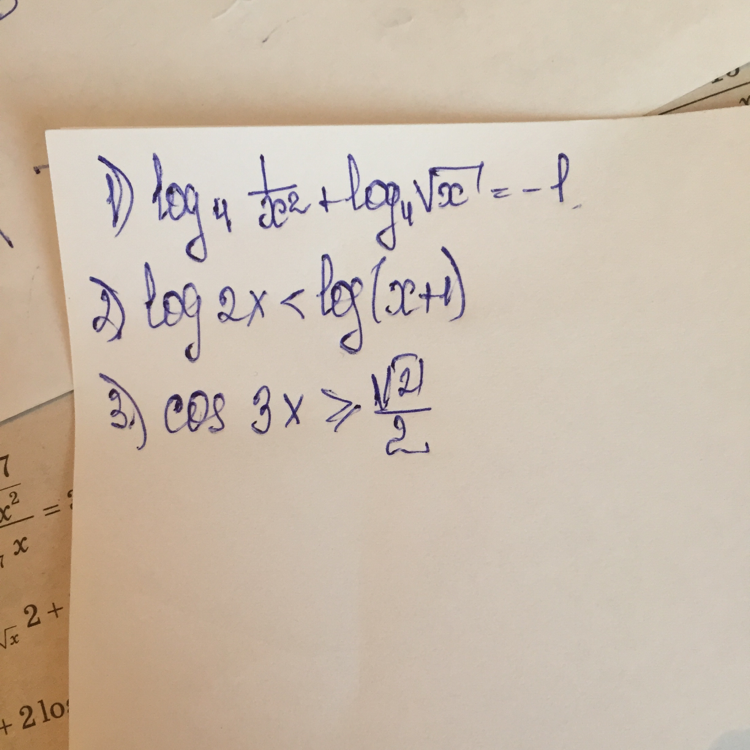 1) log₄ 1/x² + log₄ √x = -1
2) log 2x < log(x+1)
3.) cos 3x ⩾ √2/2
7
x²
x
=
√x 2 +
+ 2 log